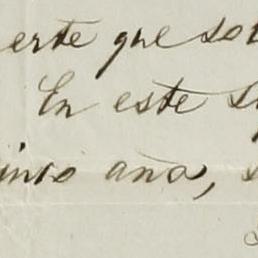 erte que so
En este
inco año,